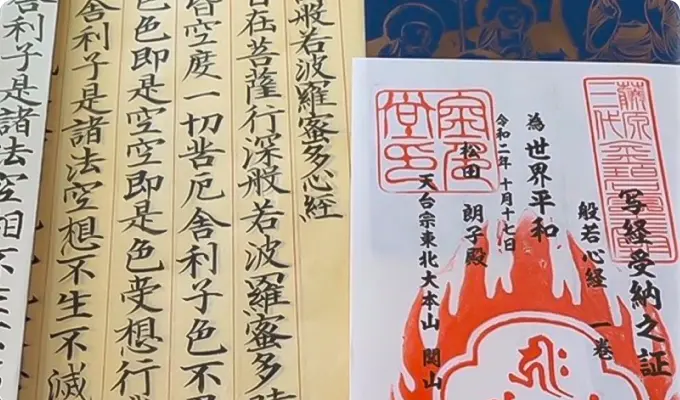 写経受納之証
般若心経 一巻
為世界平和
令和二年十月十七日
松田 朗子殿
天台宗東北大本山 関山
金色堂印
藤原三代
般若波羅蜜多心経
在菩薩行深般若波羅蜜多時
皆空度一切苦厄舎利子色不
色色即是空空即是色受想行
舎利子是諸法空想不生不滅
舎利子是諸法空相不生